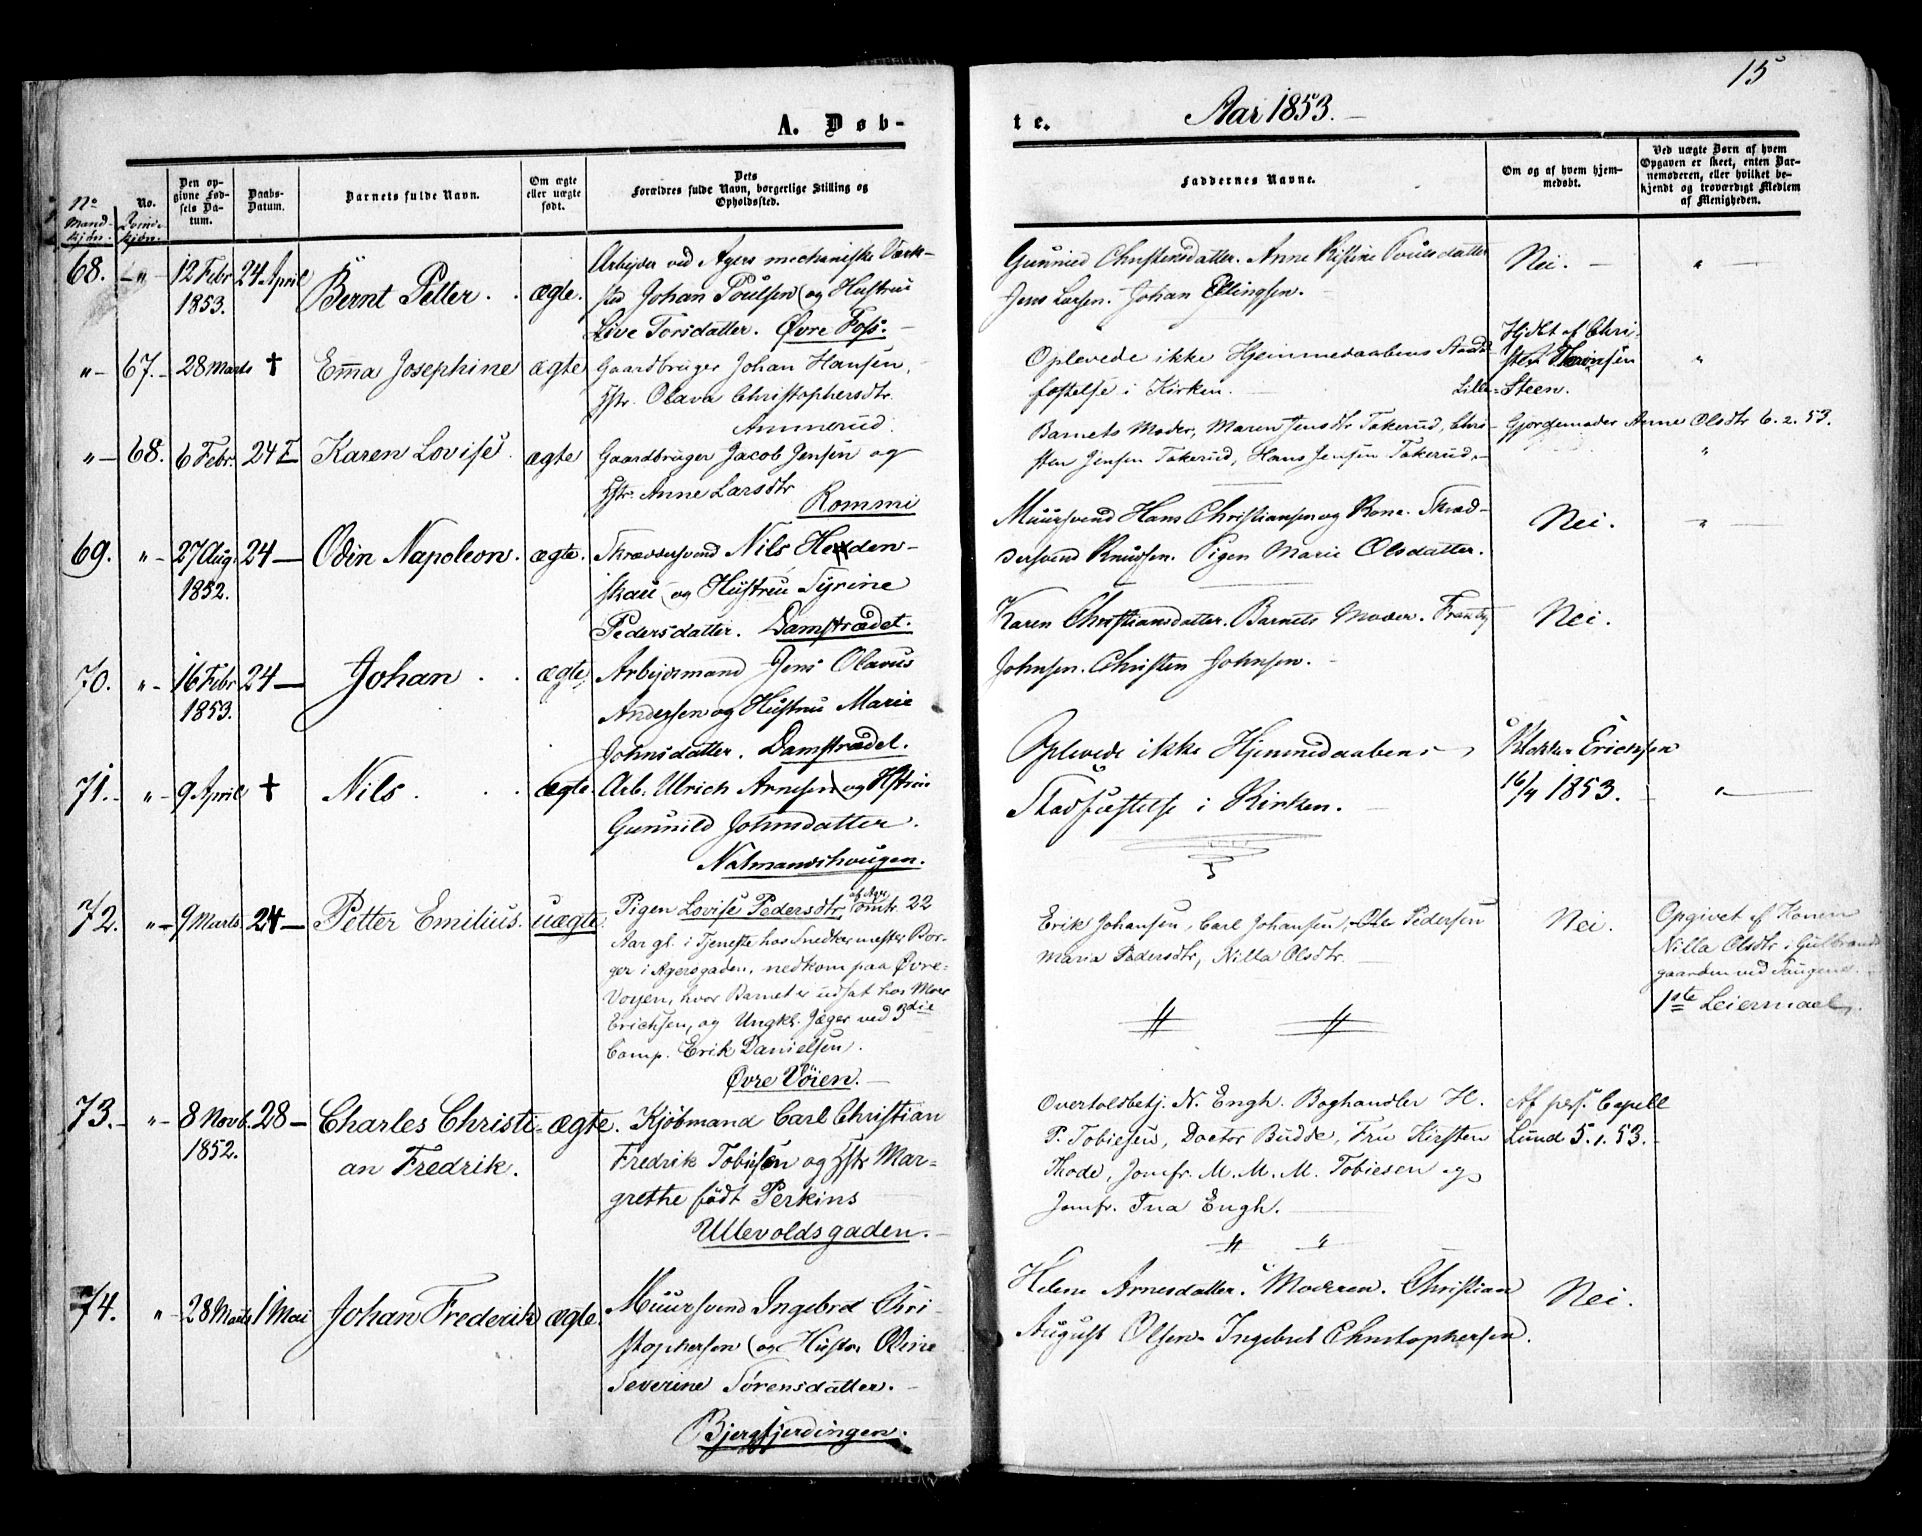 15
A. Døb-
te.
Aar 1853.
No
Mand-
kjön.
No.
Qvind-
kjön.
Den op-
givne Fød-
sels Da-
tum.
Daabs-
Datum.
Barnets fulde Navn.
Om ægte
eller uægte
født.
Dets
Forældres fulde Navn, borgerlige Stilling og
Opholdssted.
Faddernes Navne.
Om og af hvem hjem-
medøbt.
Ved uægte Børn af hvem
Opgaven er skeet, enten Bar-
nemoderen, eller hvilket be-
kjendt og troværdigt Medlem
af Menigheden.
68. " 12 Febr 1853. 24 April Bernt Petter. ægte. Arbejder ved Agers mechaniske Værk-
sted Johan Poulsen (og Hustru
Live Torsdatter. Øvre Foss.
Gunnied Christensdatter. Anne Kistine Poulsdatter
Jens Larsen. Johan Ellingsen.
Nei. "
" 67. 28 Marts † Emma Josephine ægte Gaardbruger Johan Hansen,
Hstr. Olava Christophersdtr.
Ammerud.
Oplevede ikke Hjemmedaabens Stad-
fæstelse i Kirken.
Hjdbt af Chri-
sten
Lille-Steen. "
" 68. 6 Febr. 24 Karen Lovise ægte Gaardbruger Jacob Jensen og
Hstr. Anne Larsdtr
Rommi
Barnets Moder, Maren Jensdtr Tokerud, Chri-
sten Jensen Tokerud, Hans Jensen Tokerud.
Gjordemoder Anne Olsdtr 6.2.53. "
69. " 27 Aug. 1852. 24 Odin Napoleon. ægte. Skræddersvend Nils Hedden-
skau (og Hustru Tyrine
Pedersdatter. Damstrædet.
Muursvend Hans Christiansen og Kone. Skræd-
dersvend Knudsen. Pigen Marie Olsdatter.
Nei. "
70. " 16 Febr 1853. 24 Johan ægte Arbejdsmand Jens Olavus
Andersen og Hustru Marie
Johnsdatter. Damstrædet.
Karen Christiansdatter. Barnets Moder. Frantz
Johnsen. Christen Johnsen.
Nei.
71. " 9 April † Nils. ægte. Arb. Ulrich Arnesen (og Hstru
Gunnild Johnsdatter.
Natmandshougen.
Oplevede ikke Hjemmedaabens
Stadfæstelse i Kirken.
Klokker Erichsen
16/4 1853. "
72. " 9 Marts. 24 Petter Emilius. uægte Pigen Lovise Pedersdtr af Ager omtr. 22
Aar gl. i Tjeneste hos Snedkermester Bor-
ger i Agersgaden, nedkom paa Øvre-
Voyen, hvor Barnet er udsat hos Moer
Erichsen, og Ungkl. Jæger ved 3die
Comp. Erik Danielsen.
Øvre Vöien.
Erik Johansen, Carl Johansen, Ole Pedersen
Maria Pedersdtr, Nilla Olsdtr.
Nei.
Opgivet af Konen
Nilla Olsdtr i Gulbrands
gaarden ved Saugene.
1ste Leiermaal.
73. " 8 Novb. 1852. 28 Charles Christi-
an Fredrik. ægte. Kjöbmand Carl Christian
Fredrik Tobiesen og Hstr Mar-
grethe födt Perkins
Ullevoldsgaden.
Overtoldbetj. N. Engh. Boghandler H.
P. Tobiesen, Doctor Budde, Fru Kirsten
Thode, Jomfr. M. M. M. Tobiesen og
Jomfr. Tua Engh.
Af pers. Capell
Lund 5.1.53.
74. " 28 Marts 1 Mai Johan Frederik ægte. Muursvend Ingebret Chri-
stophersen (og Hustru Oline
Severine Sörensdatter.
Bjergfjerdingen.
Helene Arnesdatter. Moderen. Christian
August Olsen. Ingebret Christophersen.
Nei.